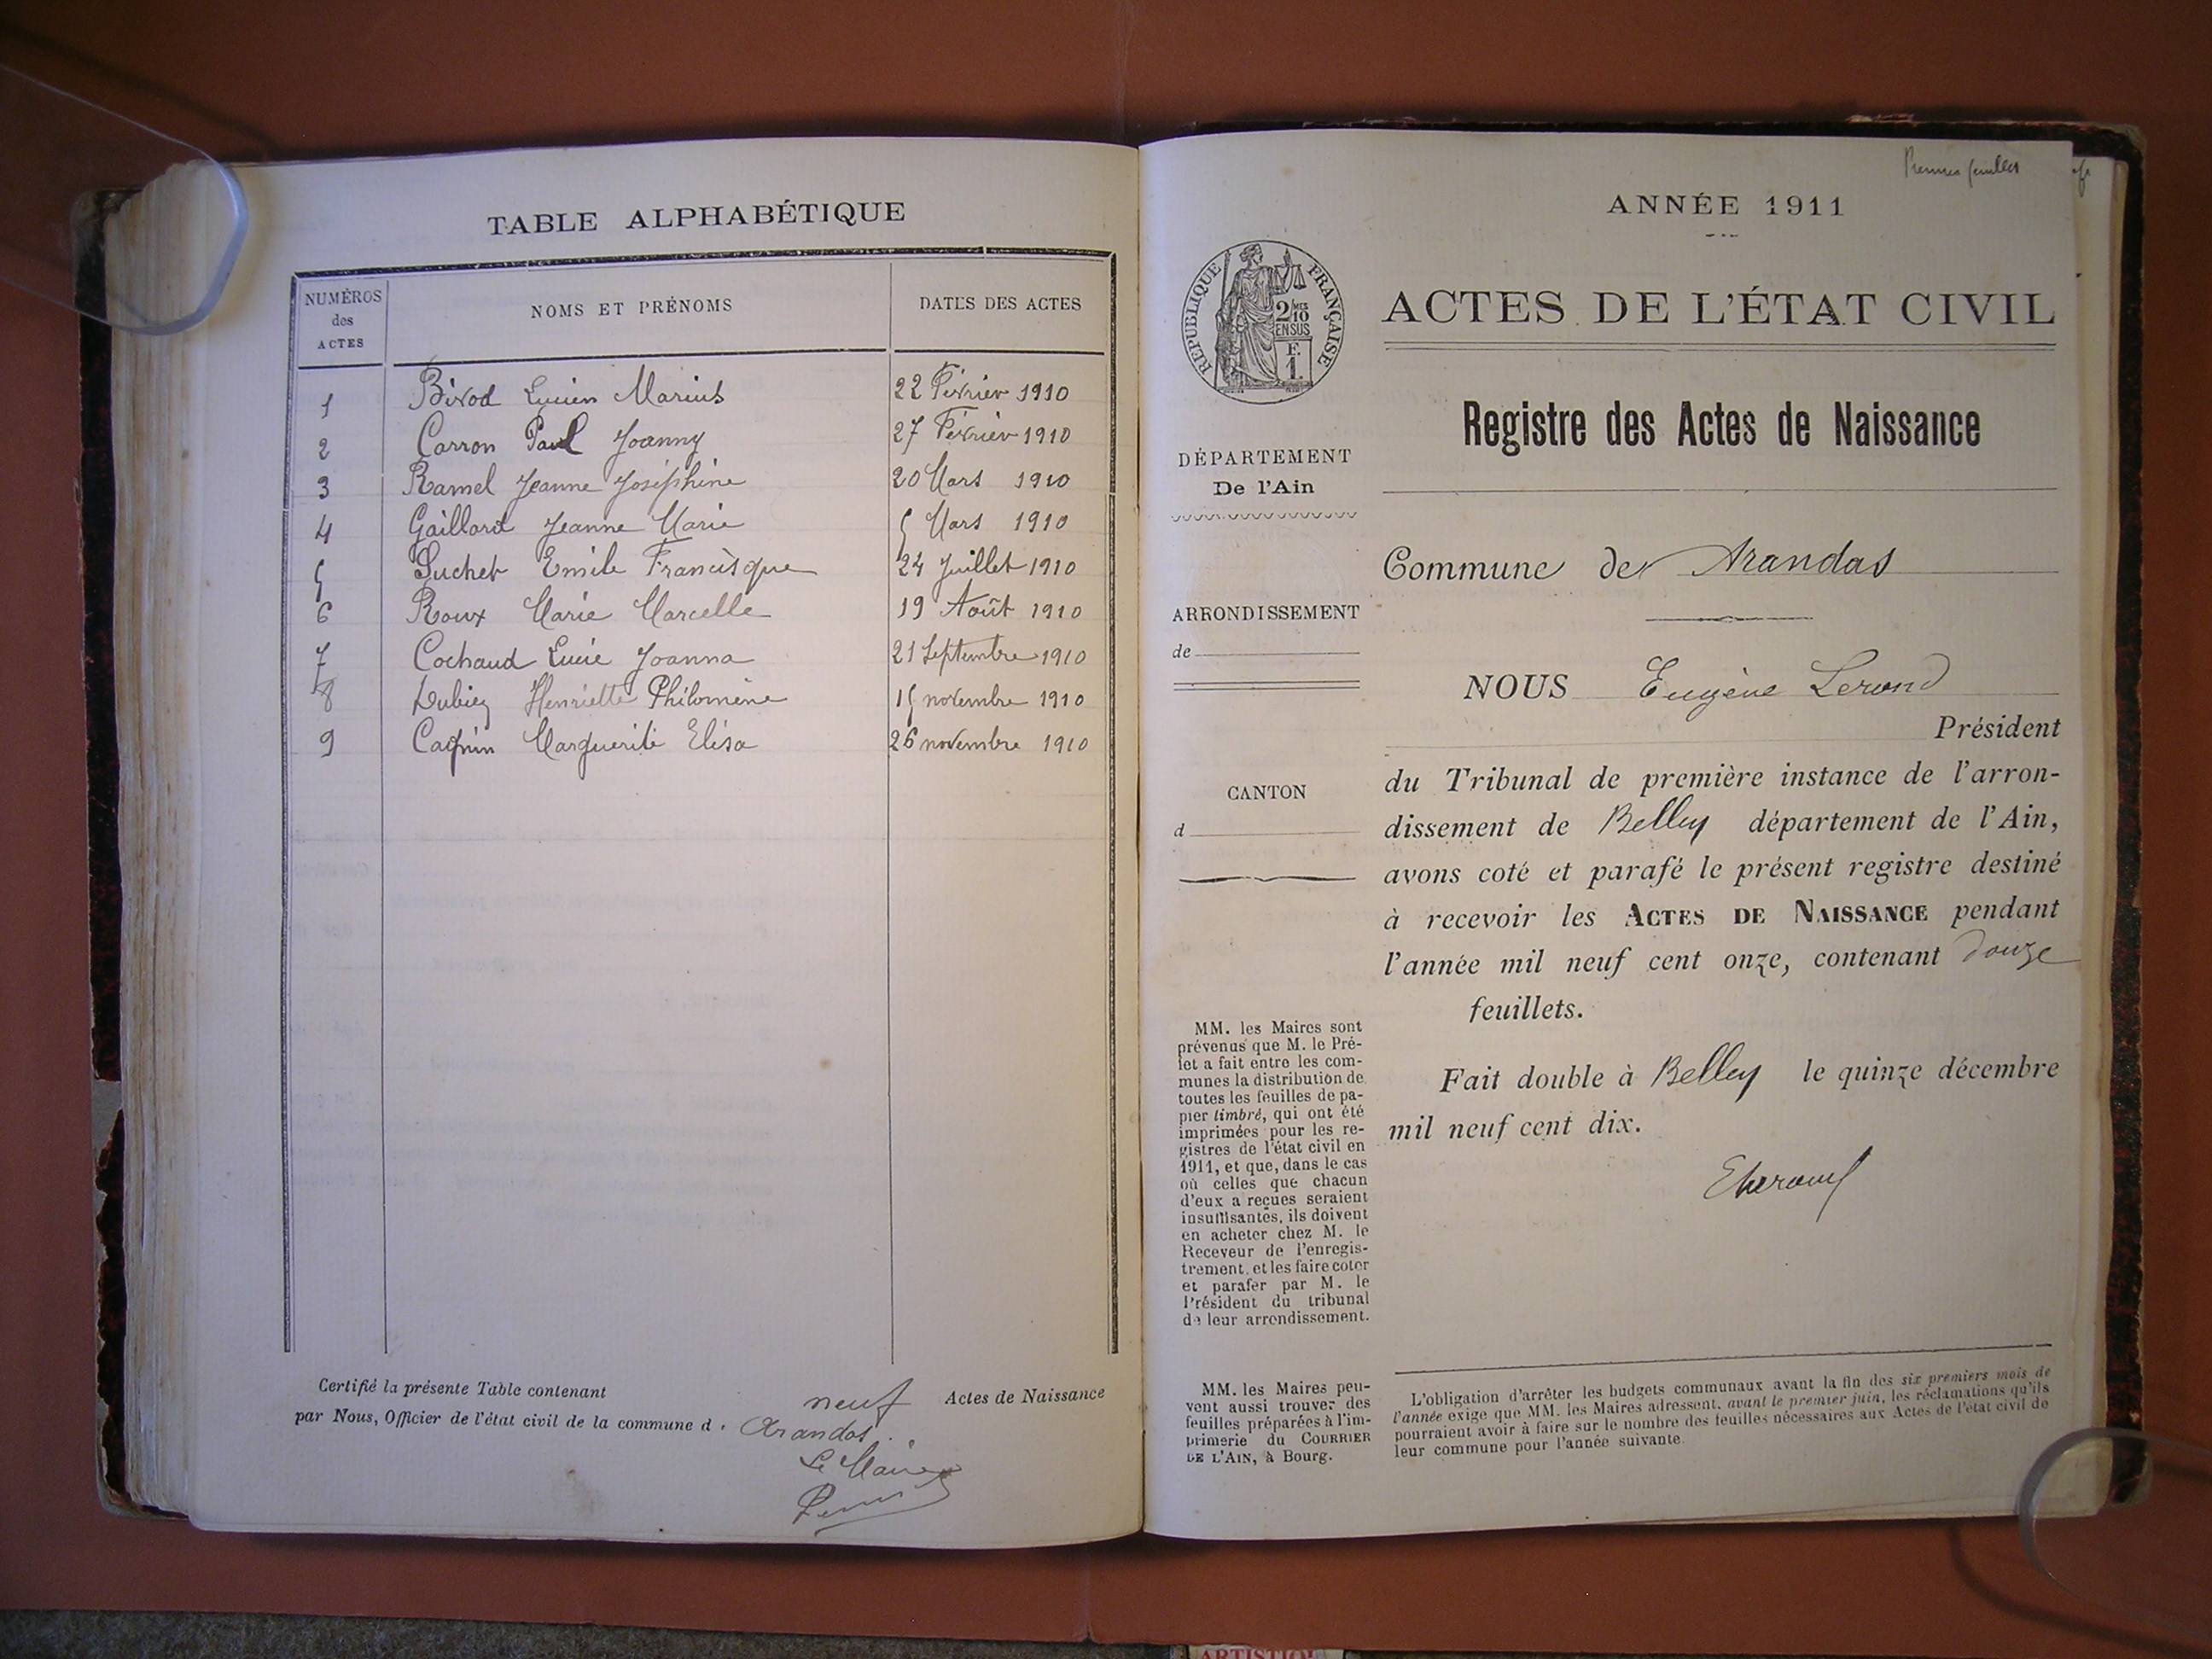 TABLE ALPHABÉTIQUE
NUMÉROS des ACTES
NOMS ET PRÉNOMS
DATES DES ACTES
1 Bivod Lucien Marius 22 Février 1910
2 Carron Paul Joanny 27 Février 1910
3 Ramel Jeanne Joséphine 20 Mars 1910
4 Gaillard Jeanne Marie 5 Mars 1910
5 Suchet Emile Francisque 24 Juillet 1910
6 Roux Marie Marcelle 19 Août 1910
7 Cochaud Lucie Joanna 21 Septembre 1910
8 Dubiez Henriette Philomène 15 novembre 1910
9 Marguerite Elisa 26 novembre 1910
Certifié la présente Table contenant neuf Actes de Naissance
par Nous, Officier de l'état civil de la commune d. Arandas.
Le Maire
Premier feuillet
ANNÉE 1911
RÉPUBLIQUE FRANÇAISE
2/10 EN SUS
F. 1.
ACTES DE L'ÉTAT CIVIL
Registre des Actes de Naissance
DÉPARTEMENT
De l'Ain
ARRONDISSEMENT
de
CANTON
d
Commune de Arandas
NOUS Eugène Lerond
Président
du Tribunal de première instance de l'arron-
dissement de Belley département de l'Ain,
avons coté et parafé le présent registre destiné
à recevoir les ACTES DE NAISSANCE pendant
l'année mil neuf cent onze, contenant douze
feuillets.
Fait double à Belley le quinze décembre
mil neuf cent dix.
MM. les Maires sont
prévenus que M. le Pré-
fet a fait entre les com-
munes la distribution de
toutes les feuilles de pa-
pier timbré, qui ont été
imprimées pour les re-
gistres de l'état civil en
1911, et que, dans le cas
où celles que chacun
d'eux a reçues seraient
insuffisantes, ils doivent
en acheter chez M. le
Receveur de l'enregis-
trement, et les faire coter
et parafer par M. le
Président du tribunal
de leur arrondissement.
MM. les Maires peu-
vent aussi trouver des
feuilles préparées à l'im-
primerie du COURRIER
DE L'AIN, à Bourg.
L'obligation d'arrêter les budgets communaux avant la fin des six premiers mois de
l'année exige que MM. les Maires adressent, avant le premier juin, les réclamations qu'ils
pourraient avoir à faire sur le nombre des feuilles nécessaires aux Actes de l'état civil de
leur commune pour l'année suivante.